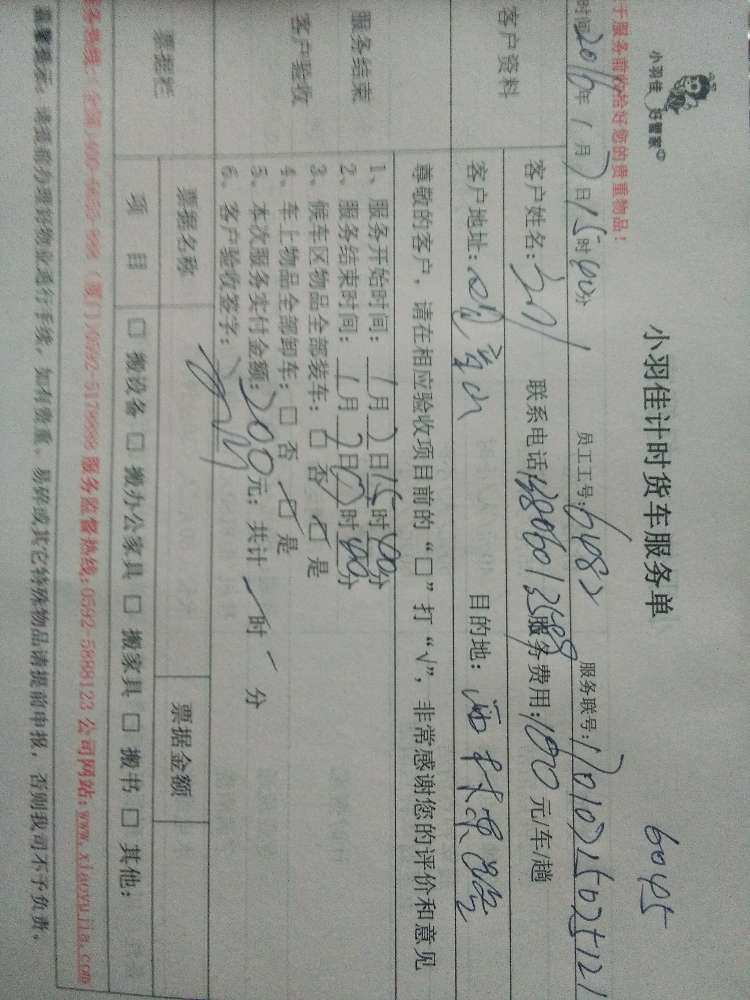 小羽佳 好管家
小羽佳计时货车服务单
6045
于服务前收拾好您的贵重物品！
时间2016年1月2日15时40分 员工工号：6482 服务联号：
客户资料
客户姓名： 联系电话13806013588 服务费用： 元/车/趟
客户地址： 目的地：
尊敬的客户，请在相应验收项目前的“□”打“√”，非常感谢您的评价和意见
服务结束
客户验收
1、服务开始时间：1月2日15时40分
2、服务结束时间：1月2日17时40分
3、候车区物品全部装车：□ 否 ☑ 是
4、车上物品全部卸车：□ 否 ☑ 是
5、本次服务实付金额：200元；共计 时 分
6、客户验收签字：
票据栏
票据名称 票据金额
项 目 □ 搬设备 □ 搬办公家具 □ 搬家具 □ 搬书 □ 其他：
务热线：全国400-6655-999（厦门）0592-5179888 服务监督热线：0592-5888123 公司网站：www.xiaoyujia.com
温馨提示：请提前办理好物业通行手续，如有贵重、易碎或其它特殊物品请提前申报，否则我司不予负责。